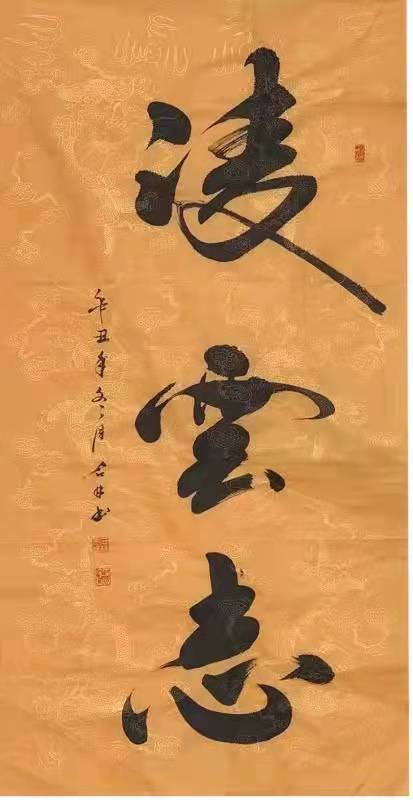 凌雲志
辛丑年冬月
书